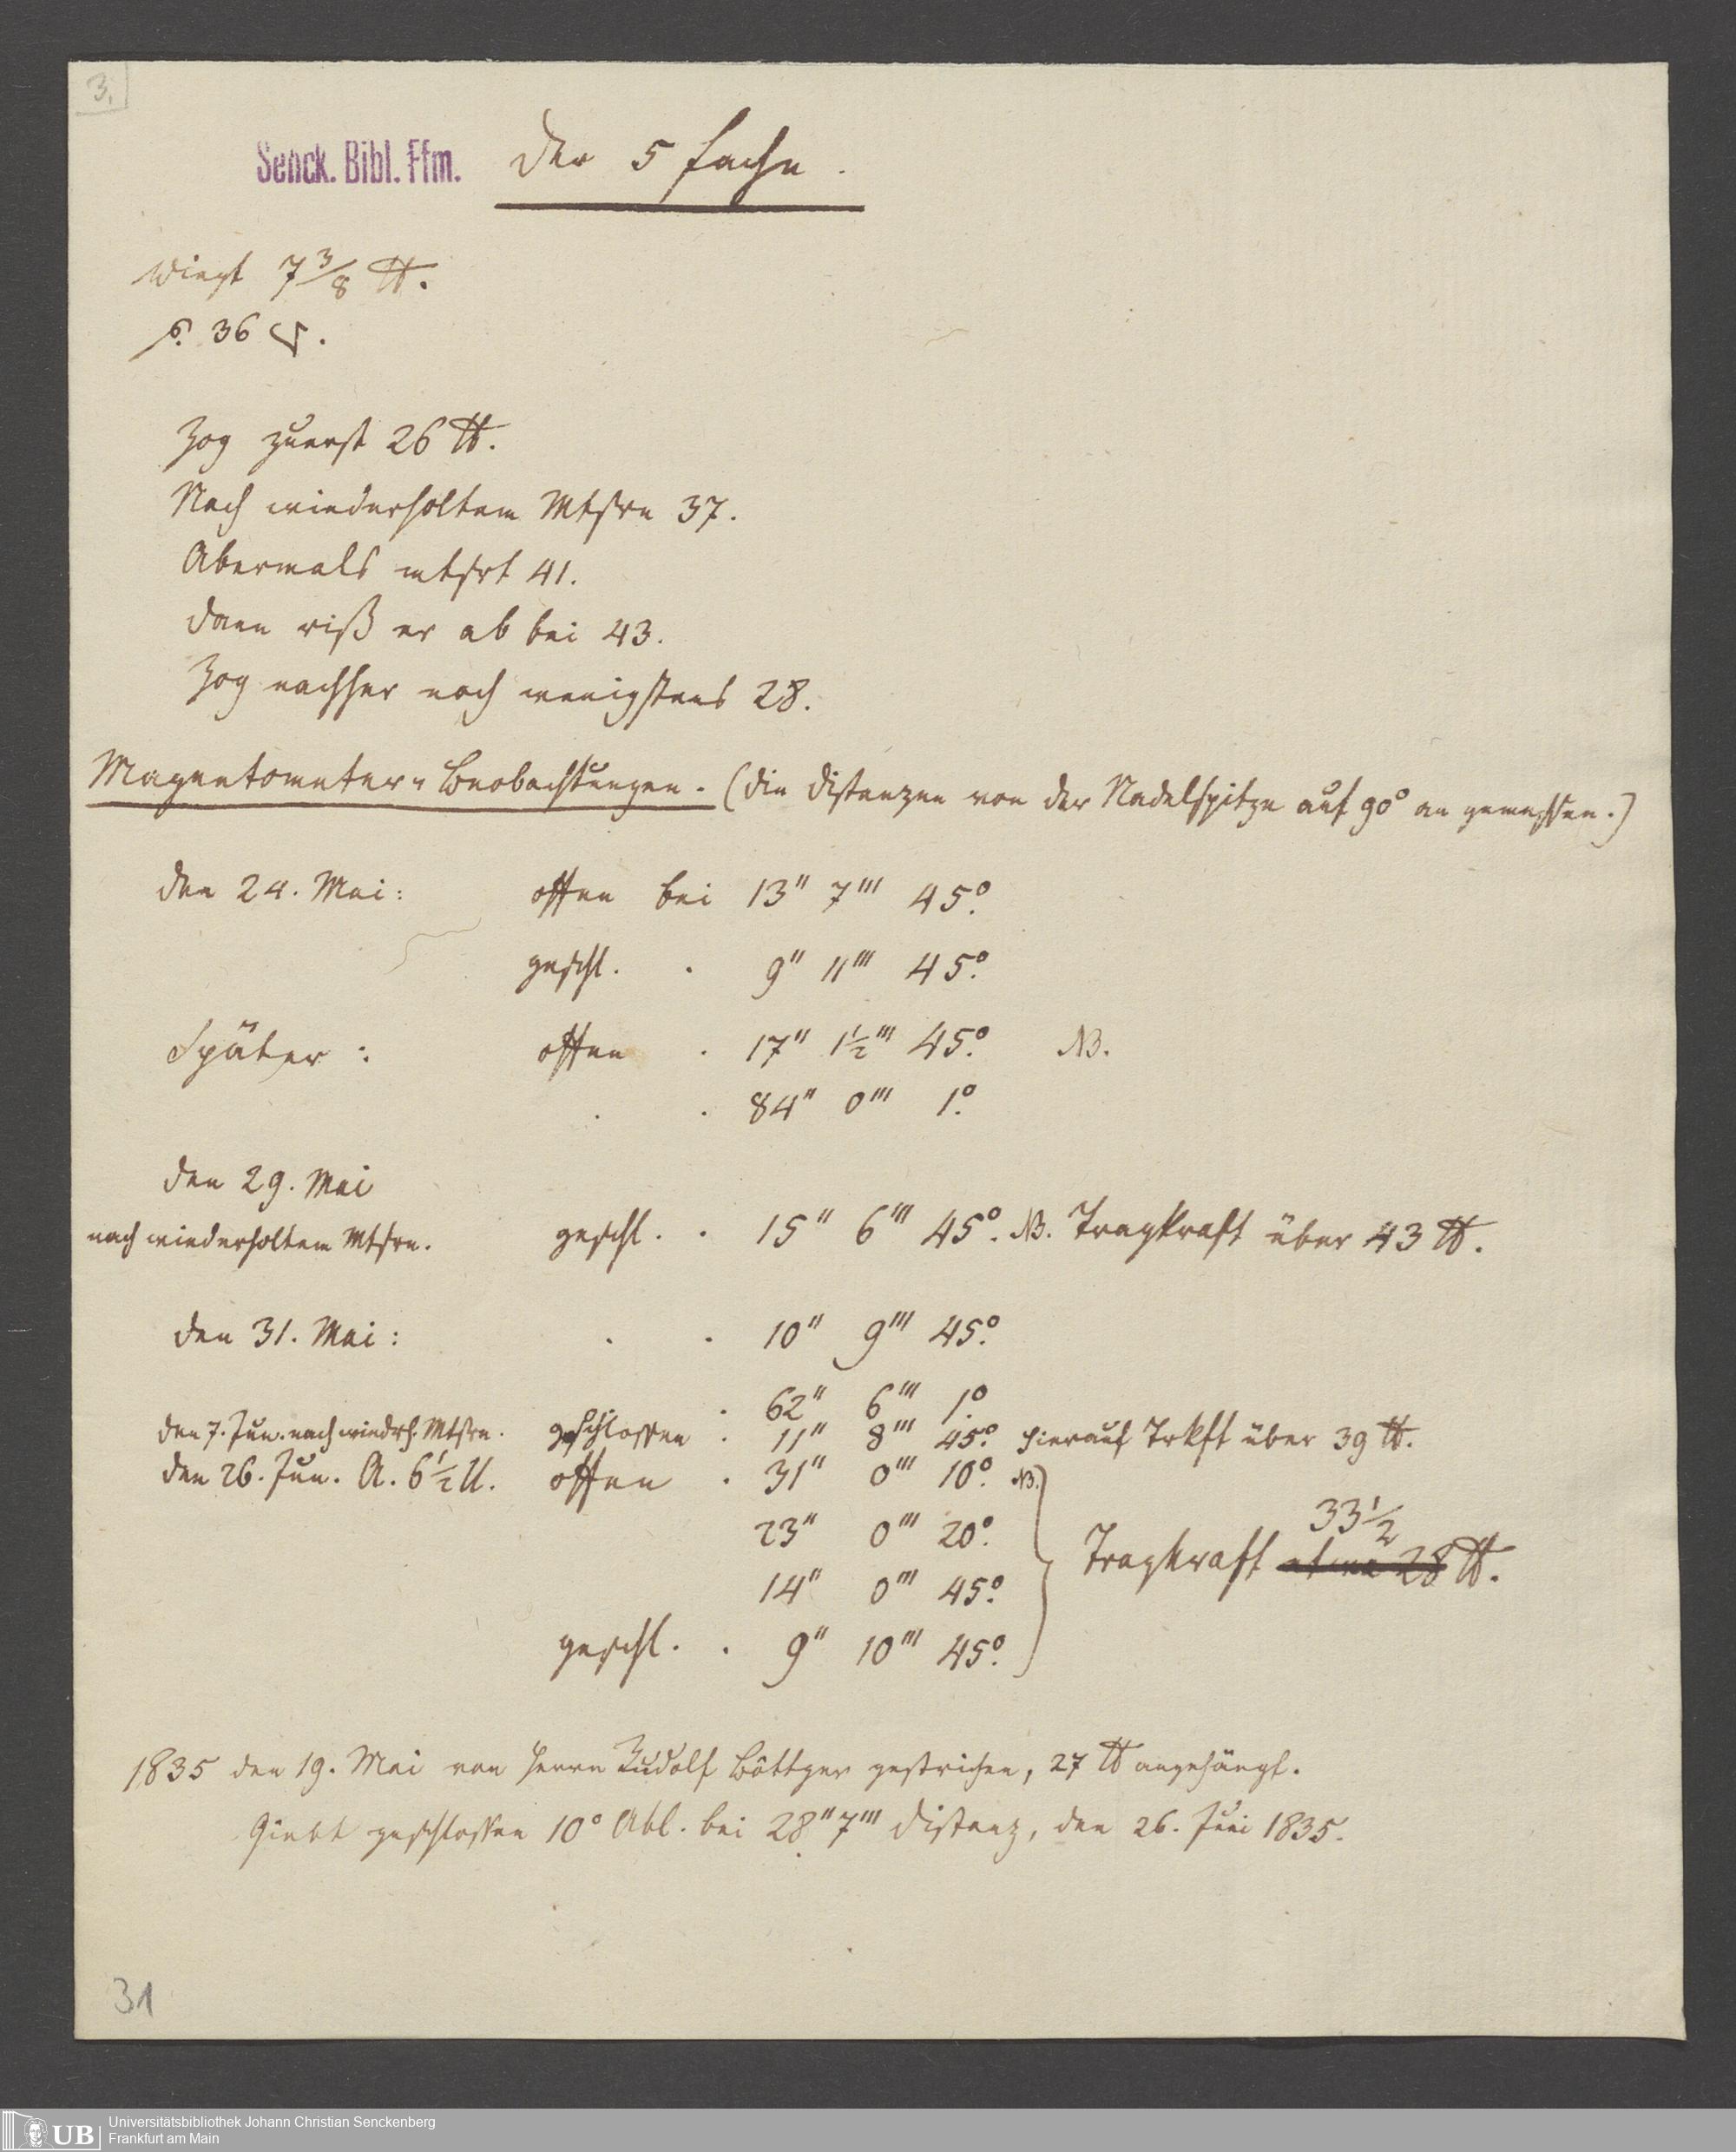 3.
Senck. Bibl. Ffm.
Der 5 fache.
Wiegt 7 3/8 ℔.
36
Zog zuerst 26 ℔.
Nach wiederholtem Mtsrn 37.
Abermals mtsrt 41.
Dann riß er ab bei 43.
Zog nachher noch wenigstens 28.
Magnetometer-Beobachtungen. (Die Distanzen von der Nadelspitze auf 90° an gemessen.)
Den 24. Mai: offen bei 13'' 7''' 45°.
geschl. . 9'' 11''' 45°.
Später: offen . 17'' 1½''' 45°. NB.
. . 84'' 0''' 1°.
Den 29. Mai
nach wiederholtem Mtsrn. geschl. . 15'' 6''' 45°. NB. Tragkraft über 43 ℔.
Den 31. Mai: . . 10'' 9''' 45°.
. 62'' 6''' 1°.
Den 7. Jun. nach wiedrh. Mtsrn. geschlossen . 11'' 8''' 45°. Hierauf Trkft über 39 ℔.
Den 26. Jun. A. 6½ U. offen . 31'' 0''' 10°. NB.
23'' 0''' 20°.
33½
14'' 0''' 45°. Tragkraft etwa 28 ℔.
geschl. . 9'' 10''' 45°.
1835 den 19. Mai von Herrn Rudolf Böttger gestrichen, 27 ℔ angehängt.
Giebt geschlossen 10° Abl. bei 28'' 7''' Distanz, den 26. Juni 1835.
31
UB
Universitätsbibliothek Johann Christian Senckenberg
Frankfurt am Main